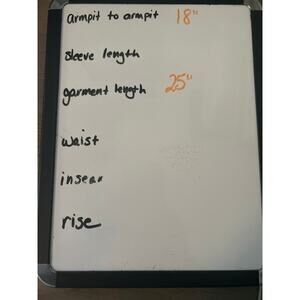 armpit to armpit 18"
sleeve length
garment length 25"
waist
insear
rise